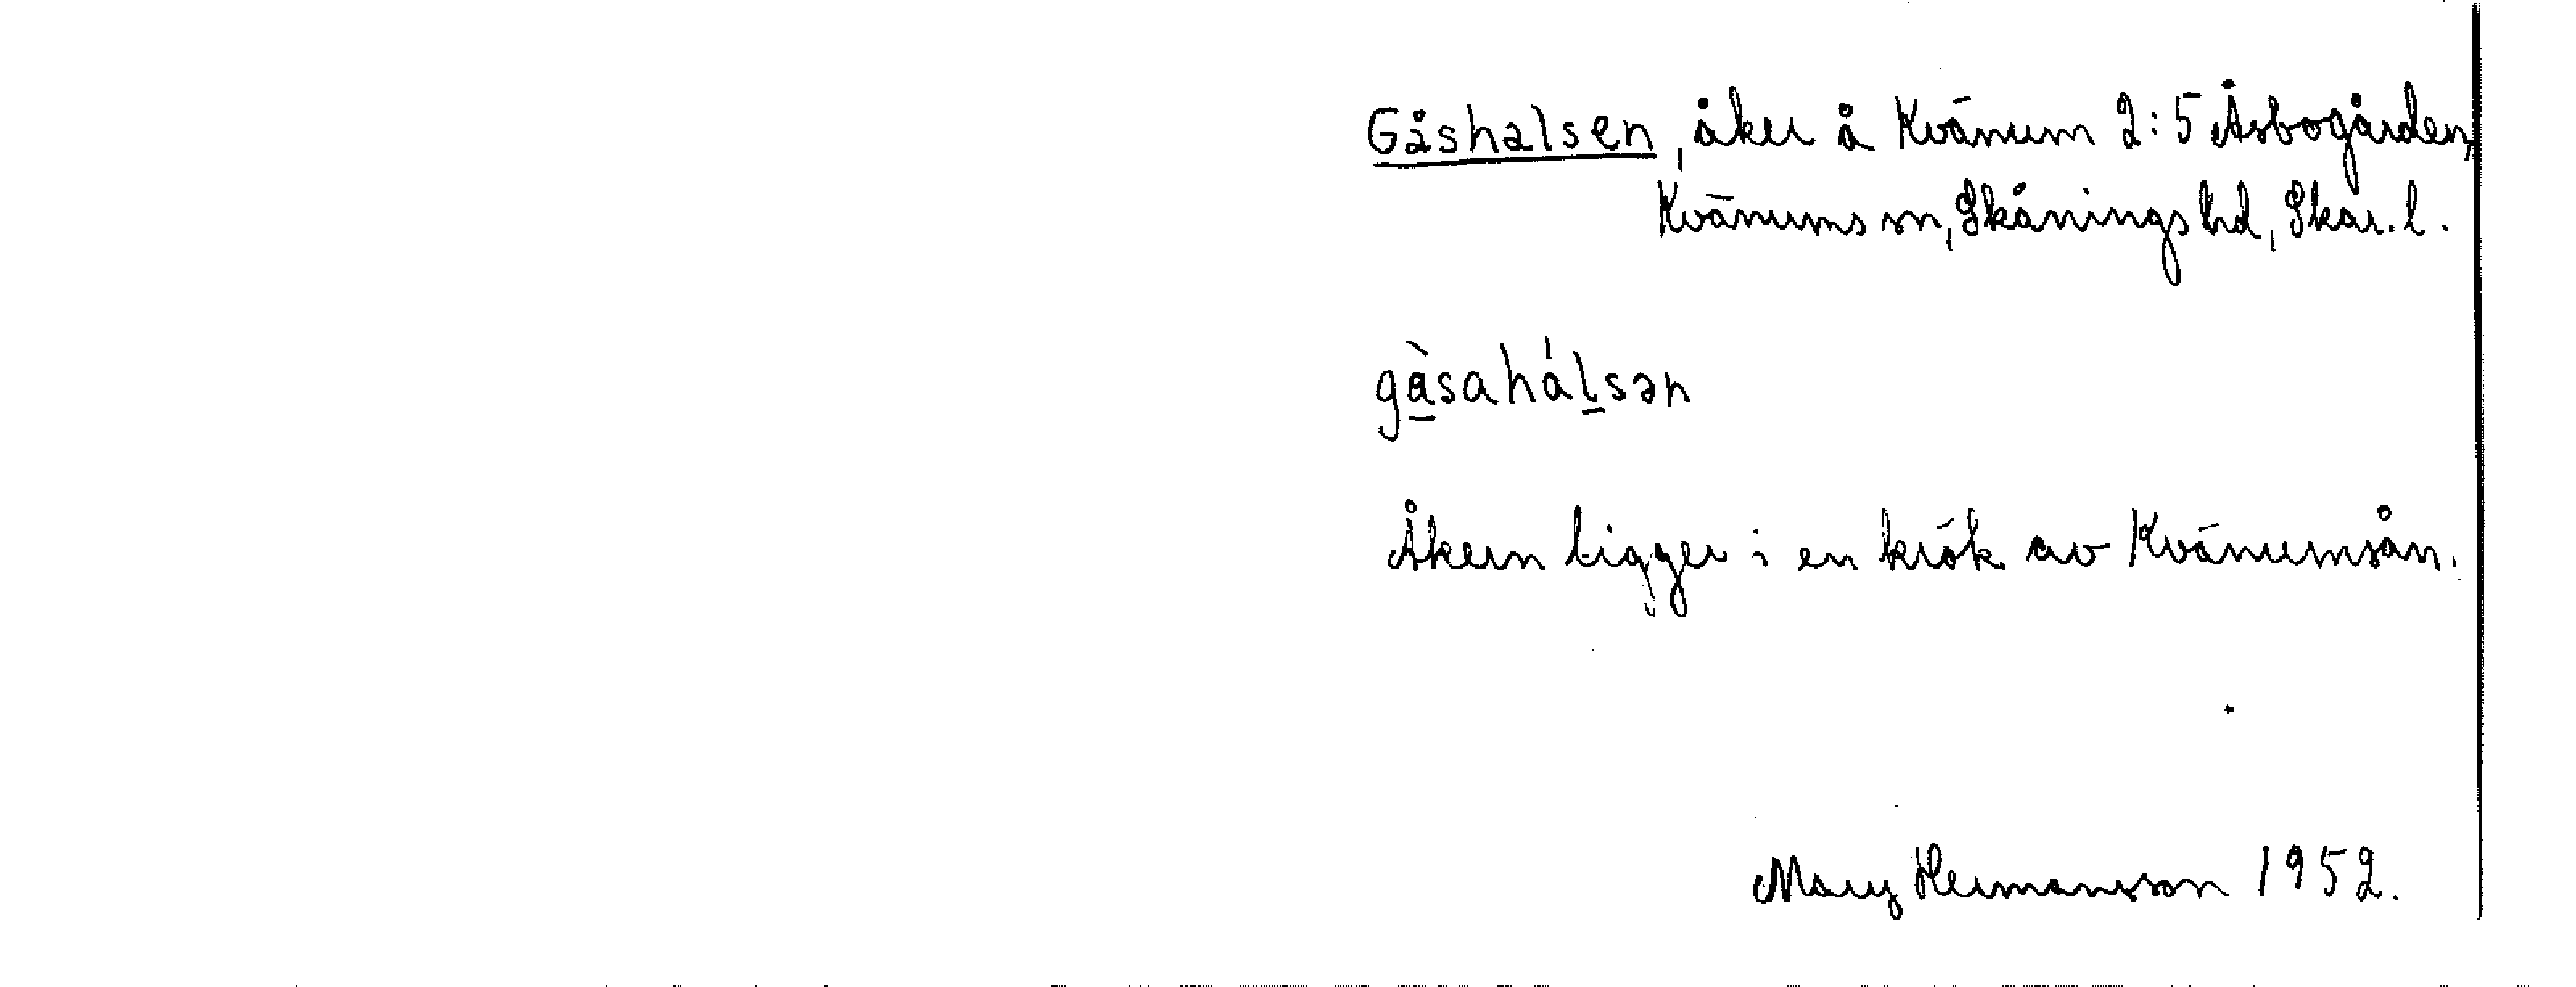 Gåshalsen, åker å Kvänum 2:5 Åsbogården,
Kvänums sn, Skånings hd, Skar. l.
gàsahálsən
Åkern ligger i en krök av Kvänumsån.
Mary Hermansson 1952.